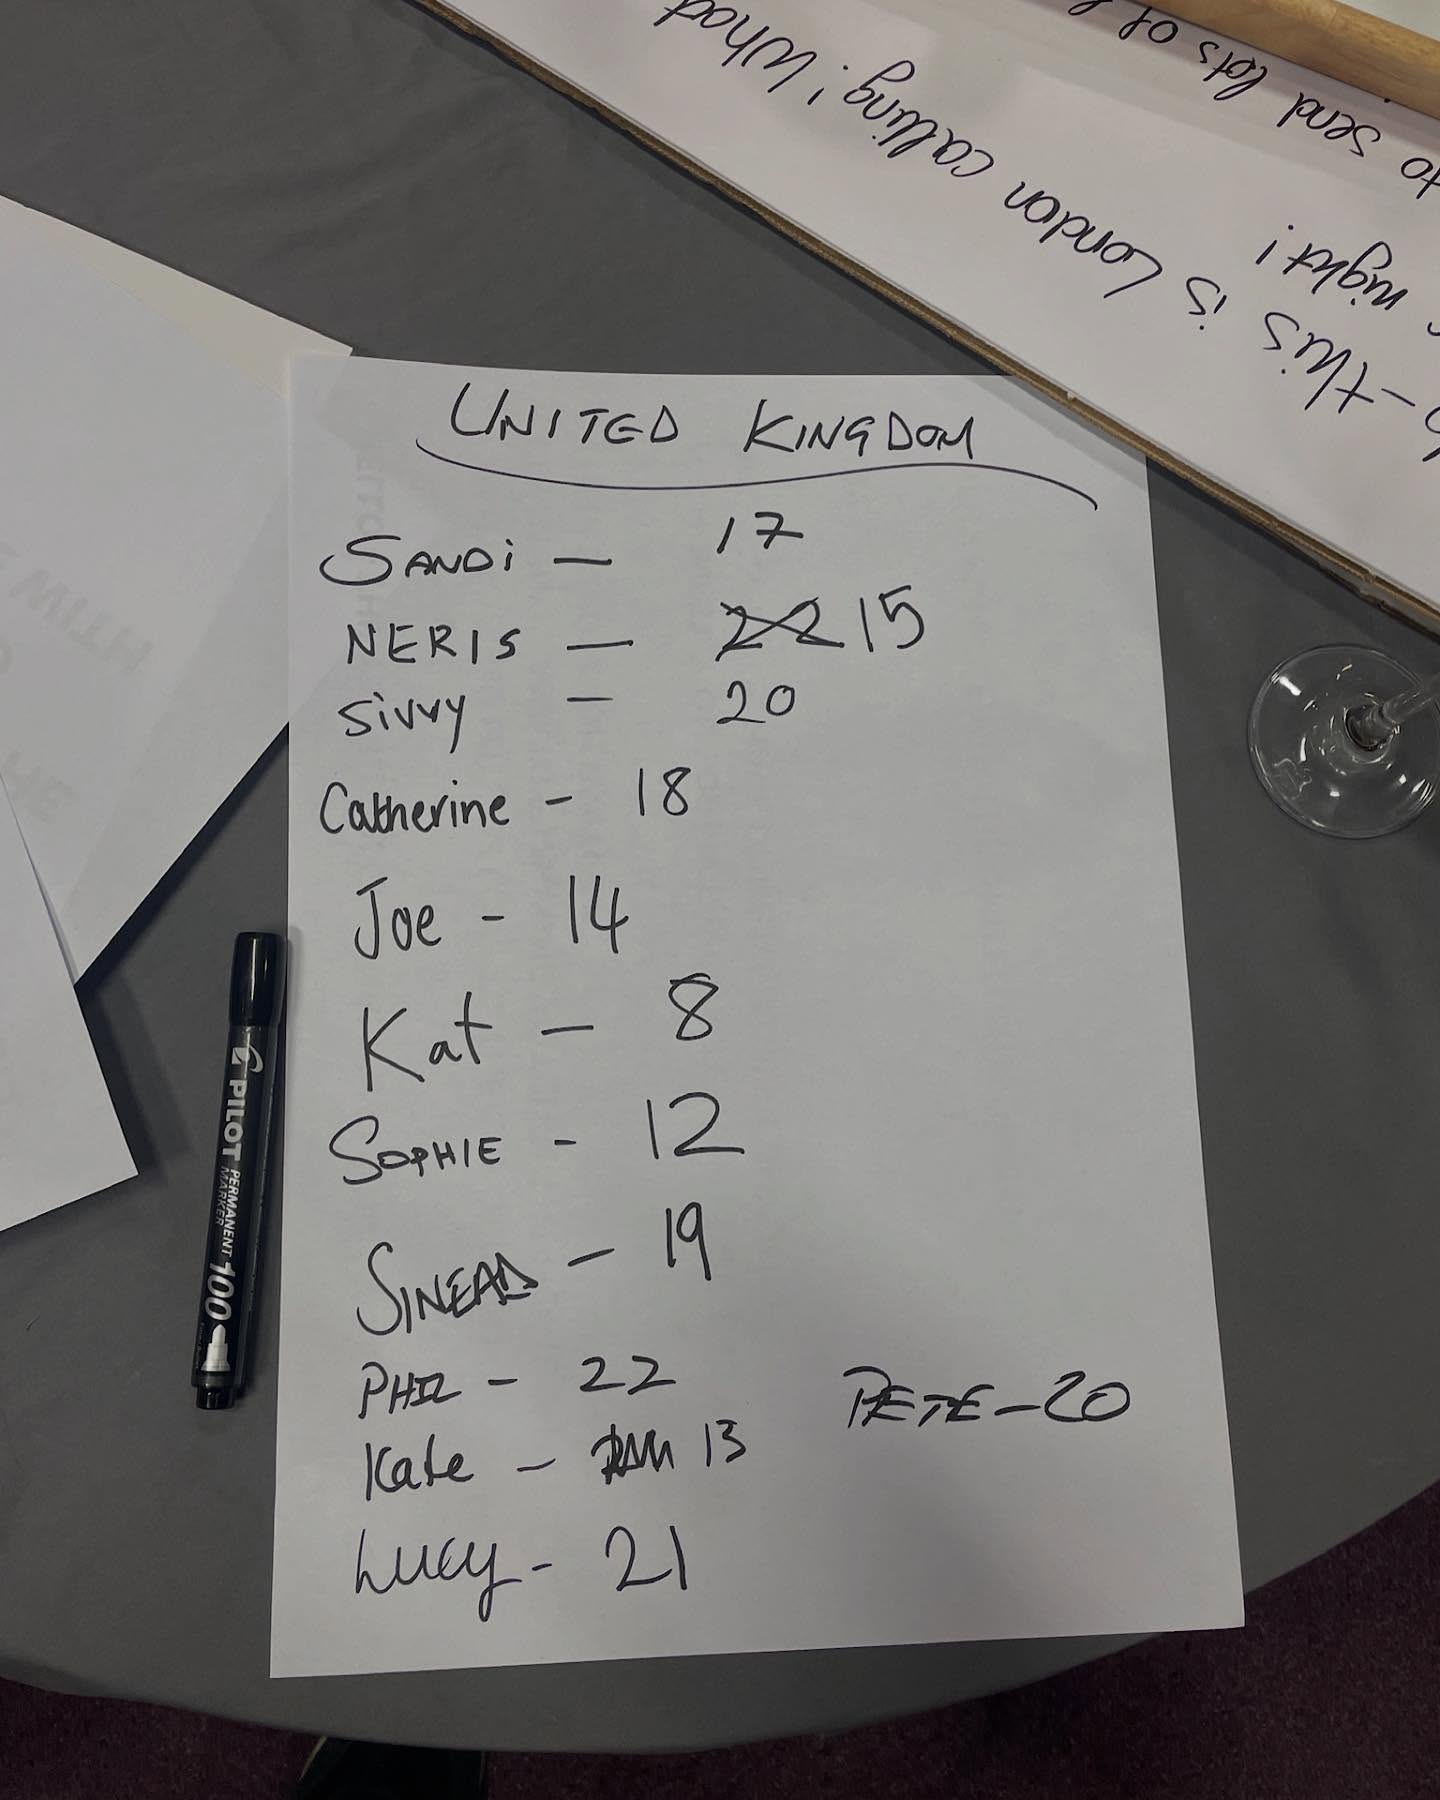 to send lots of
night!
- this is London calling! What
UNITED KINGDOM
SANDi — 17
NERIS — 22 15
Sivvy — 20
Catherine - 18
Joe - 14
Kat — 8
SOPHIE - 12
SINEAD — 19
PHIL - 22
PETE - 20
Kate - 13
Lucy - 21
PILOT
PERMANENT
MARKER
100
WITH
HE